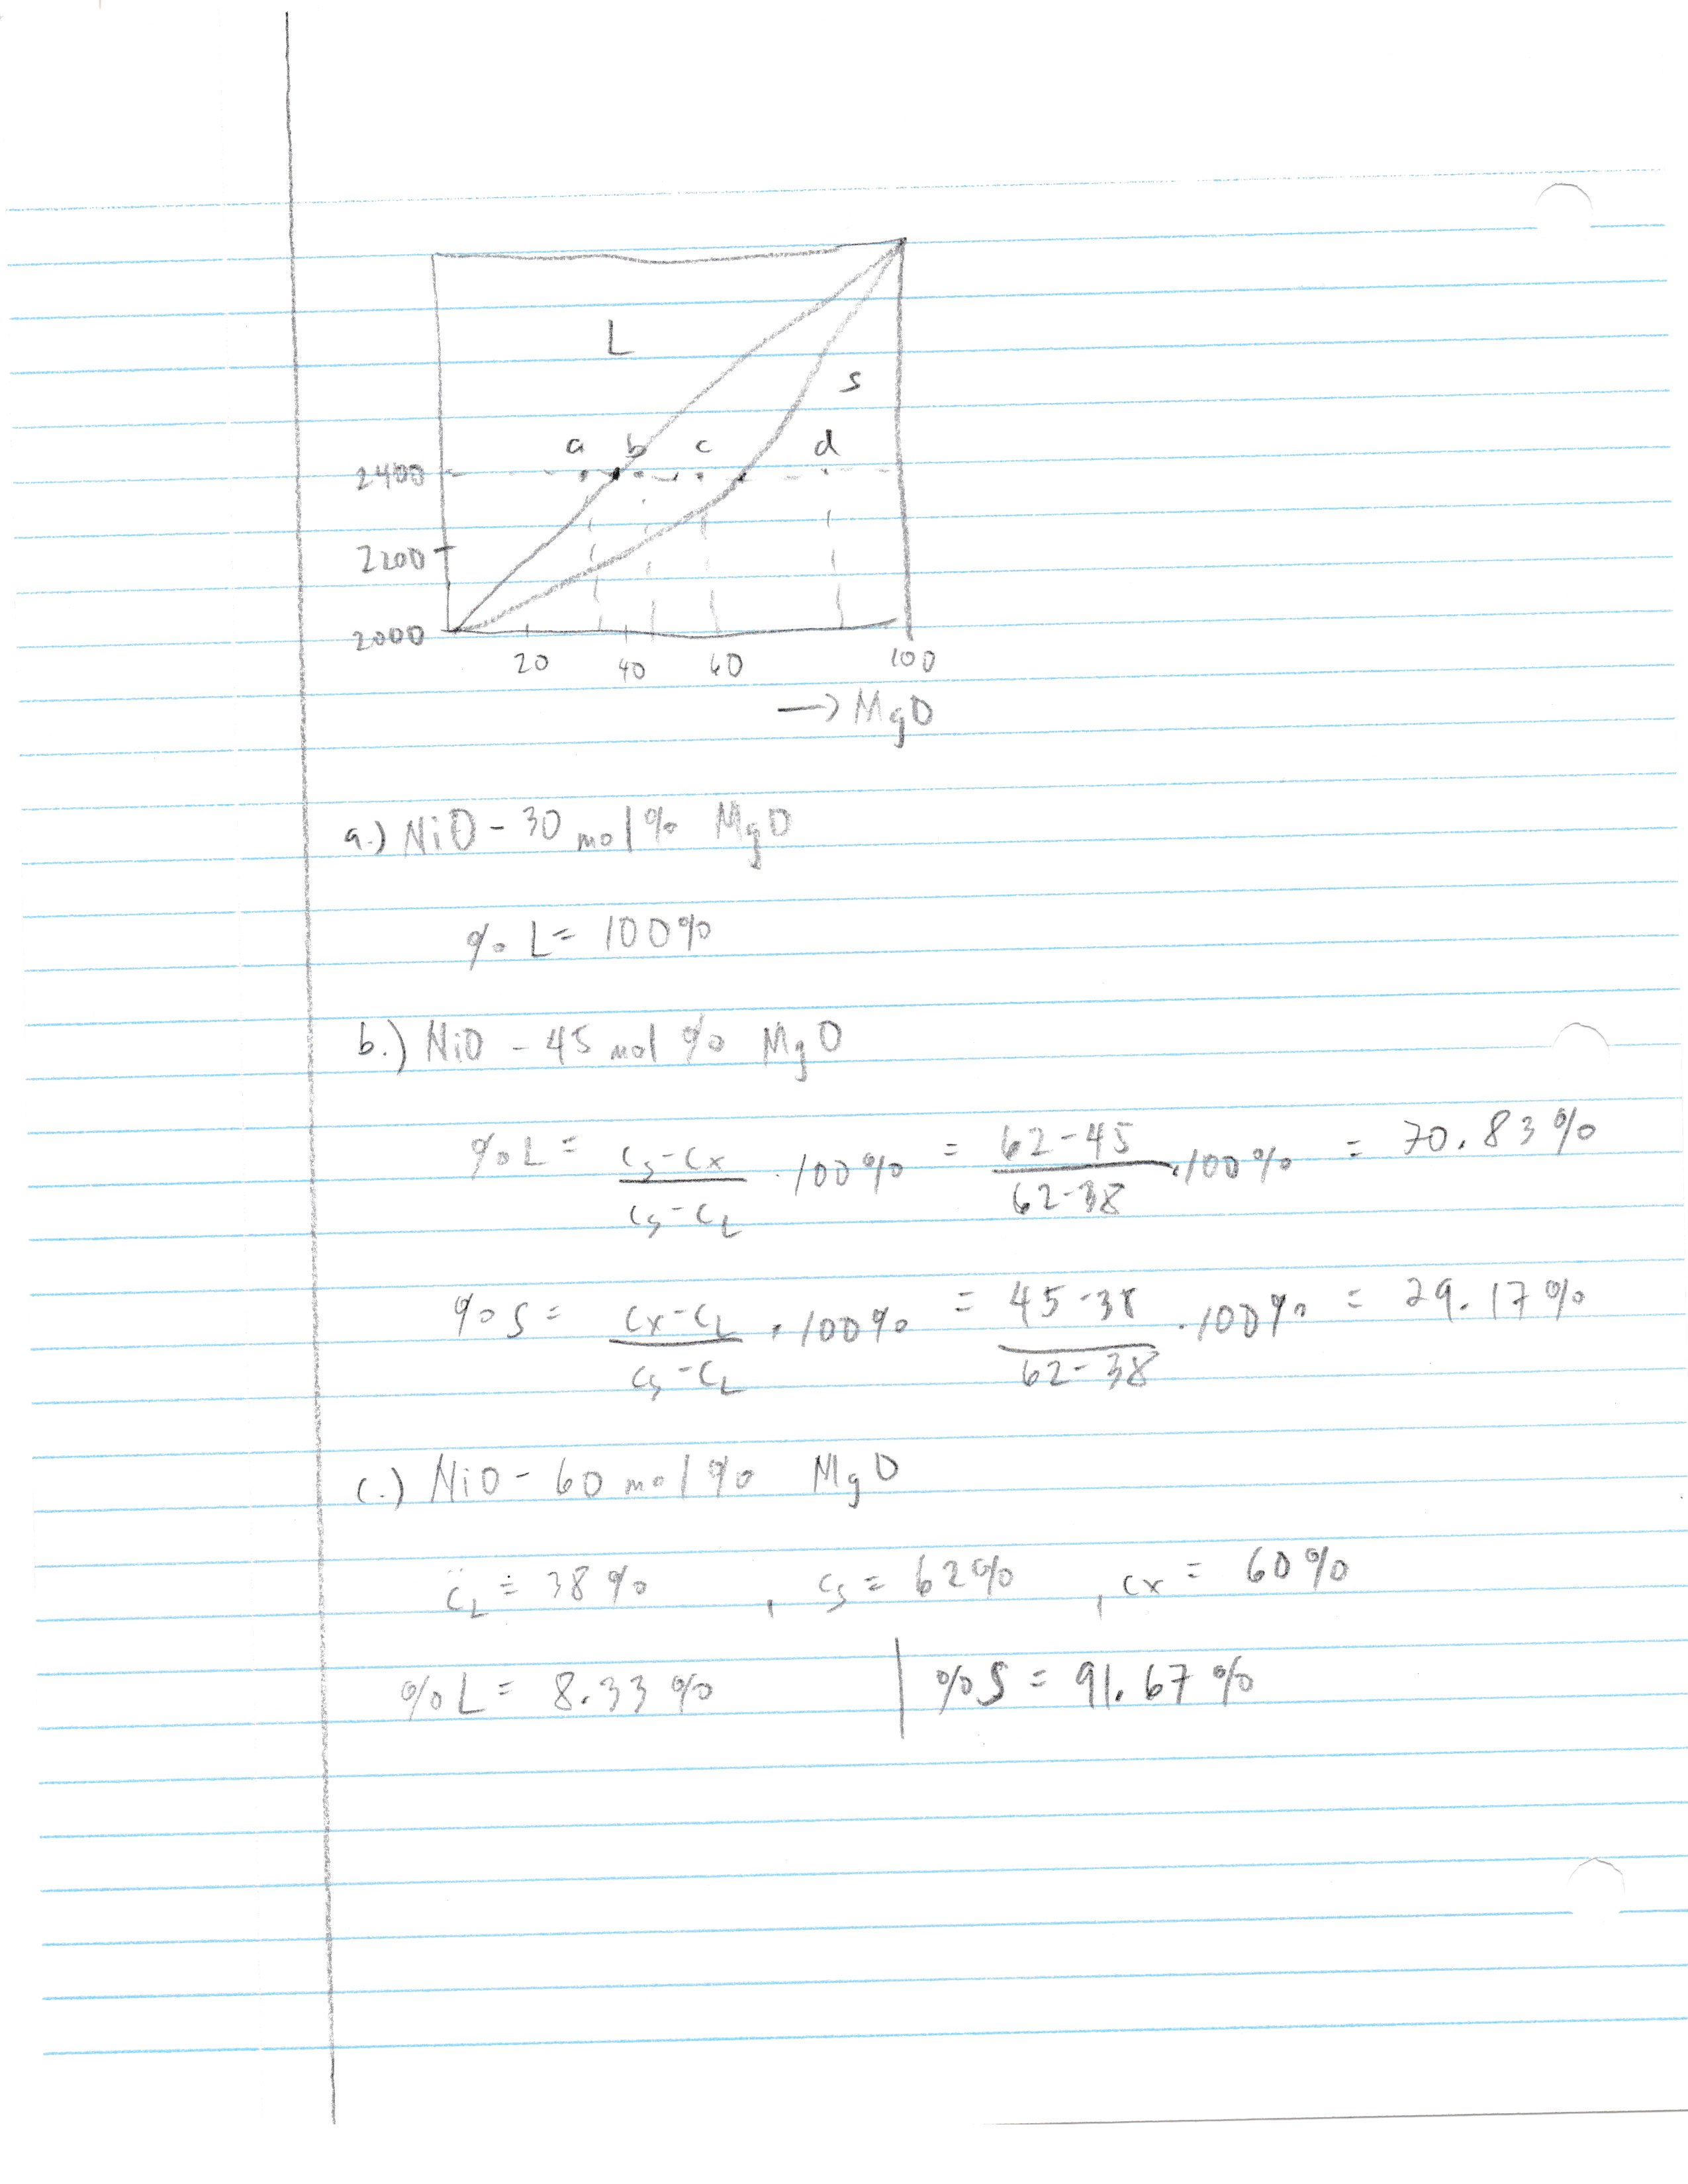 L
s
a b c d
2400
2200
2000
20 40 60 100
→ MgO
a.) NiO - 30 mol% MgO
% L = 100%
b.) NiO - 45 mol % MgO
% L = (cs - cx)/(cs - cL) · 100% = (62-45)/(62-38) · 100% = 70.83%
% S = (cx - cL)/(cs - cL) · 100% = (45-38)/(62-38) · 100% = 29.17%
c.) NiO - 60 mol % MgO
cL = 38% , cs = 62% , cx = 60%
% L = 8.33% | % S = 91.67%